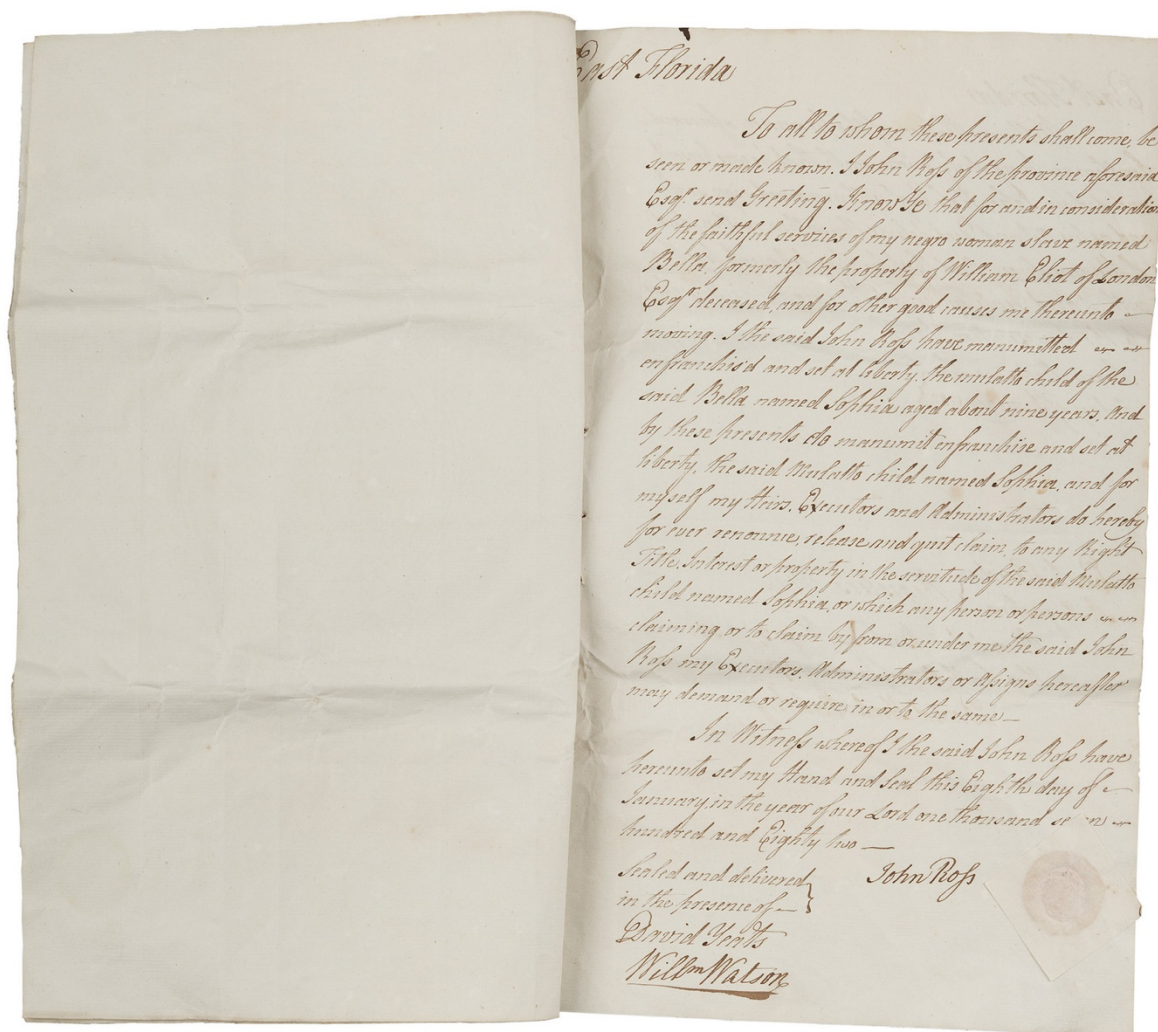 East Florida
To all to whom these presents shall come, be
seen or made known. I John Ross of the province aforesaid
Esqr. send Greeting. Know Ye that for and in consideration
of the faithful services of my negro woman slave named
Bella. formerly the property of William Eliot of London
Esqr. deceased, and for other good causes me thereunto
moving. I the said John Ross have manumitted
enfranchis'd and set at liberty. the mulatto child of the
said Bella named Sophia aged about nine years. And
by these presents do manumit enfranchise and set at
liberty, the said Mulatto child named Sophia, and for
myself my Heirs, Executors and Administrators do hereby
for ever renounce, release and quit claim, to any Right
Title, Interest or property in the servitude of the said Mulatto
child named Sophia, or which any person or persons
claiming or to claim by from or under me the said John
Ross my Executors, Administrators or Assigns hereafter
may demand or require in or to the same —
In Witness whereof I the said John Ross have
hereunto set my Hand and Seal this Eighth day of
January, in the year of our Lord one thousand se n
hundred and Eighty two —
Sealed and delivered
in the presence of —
John Ross
David Yeats
Willm Watson